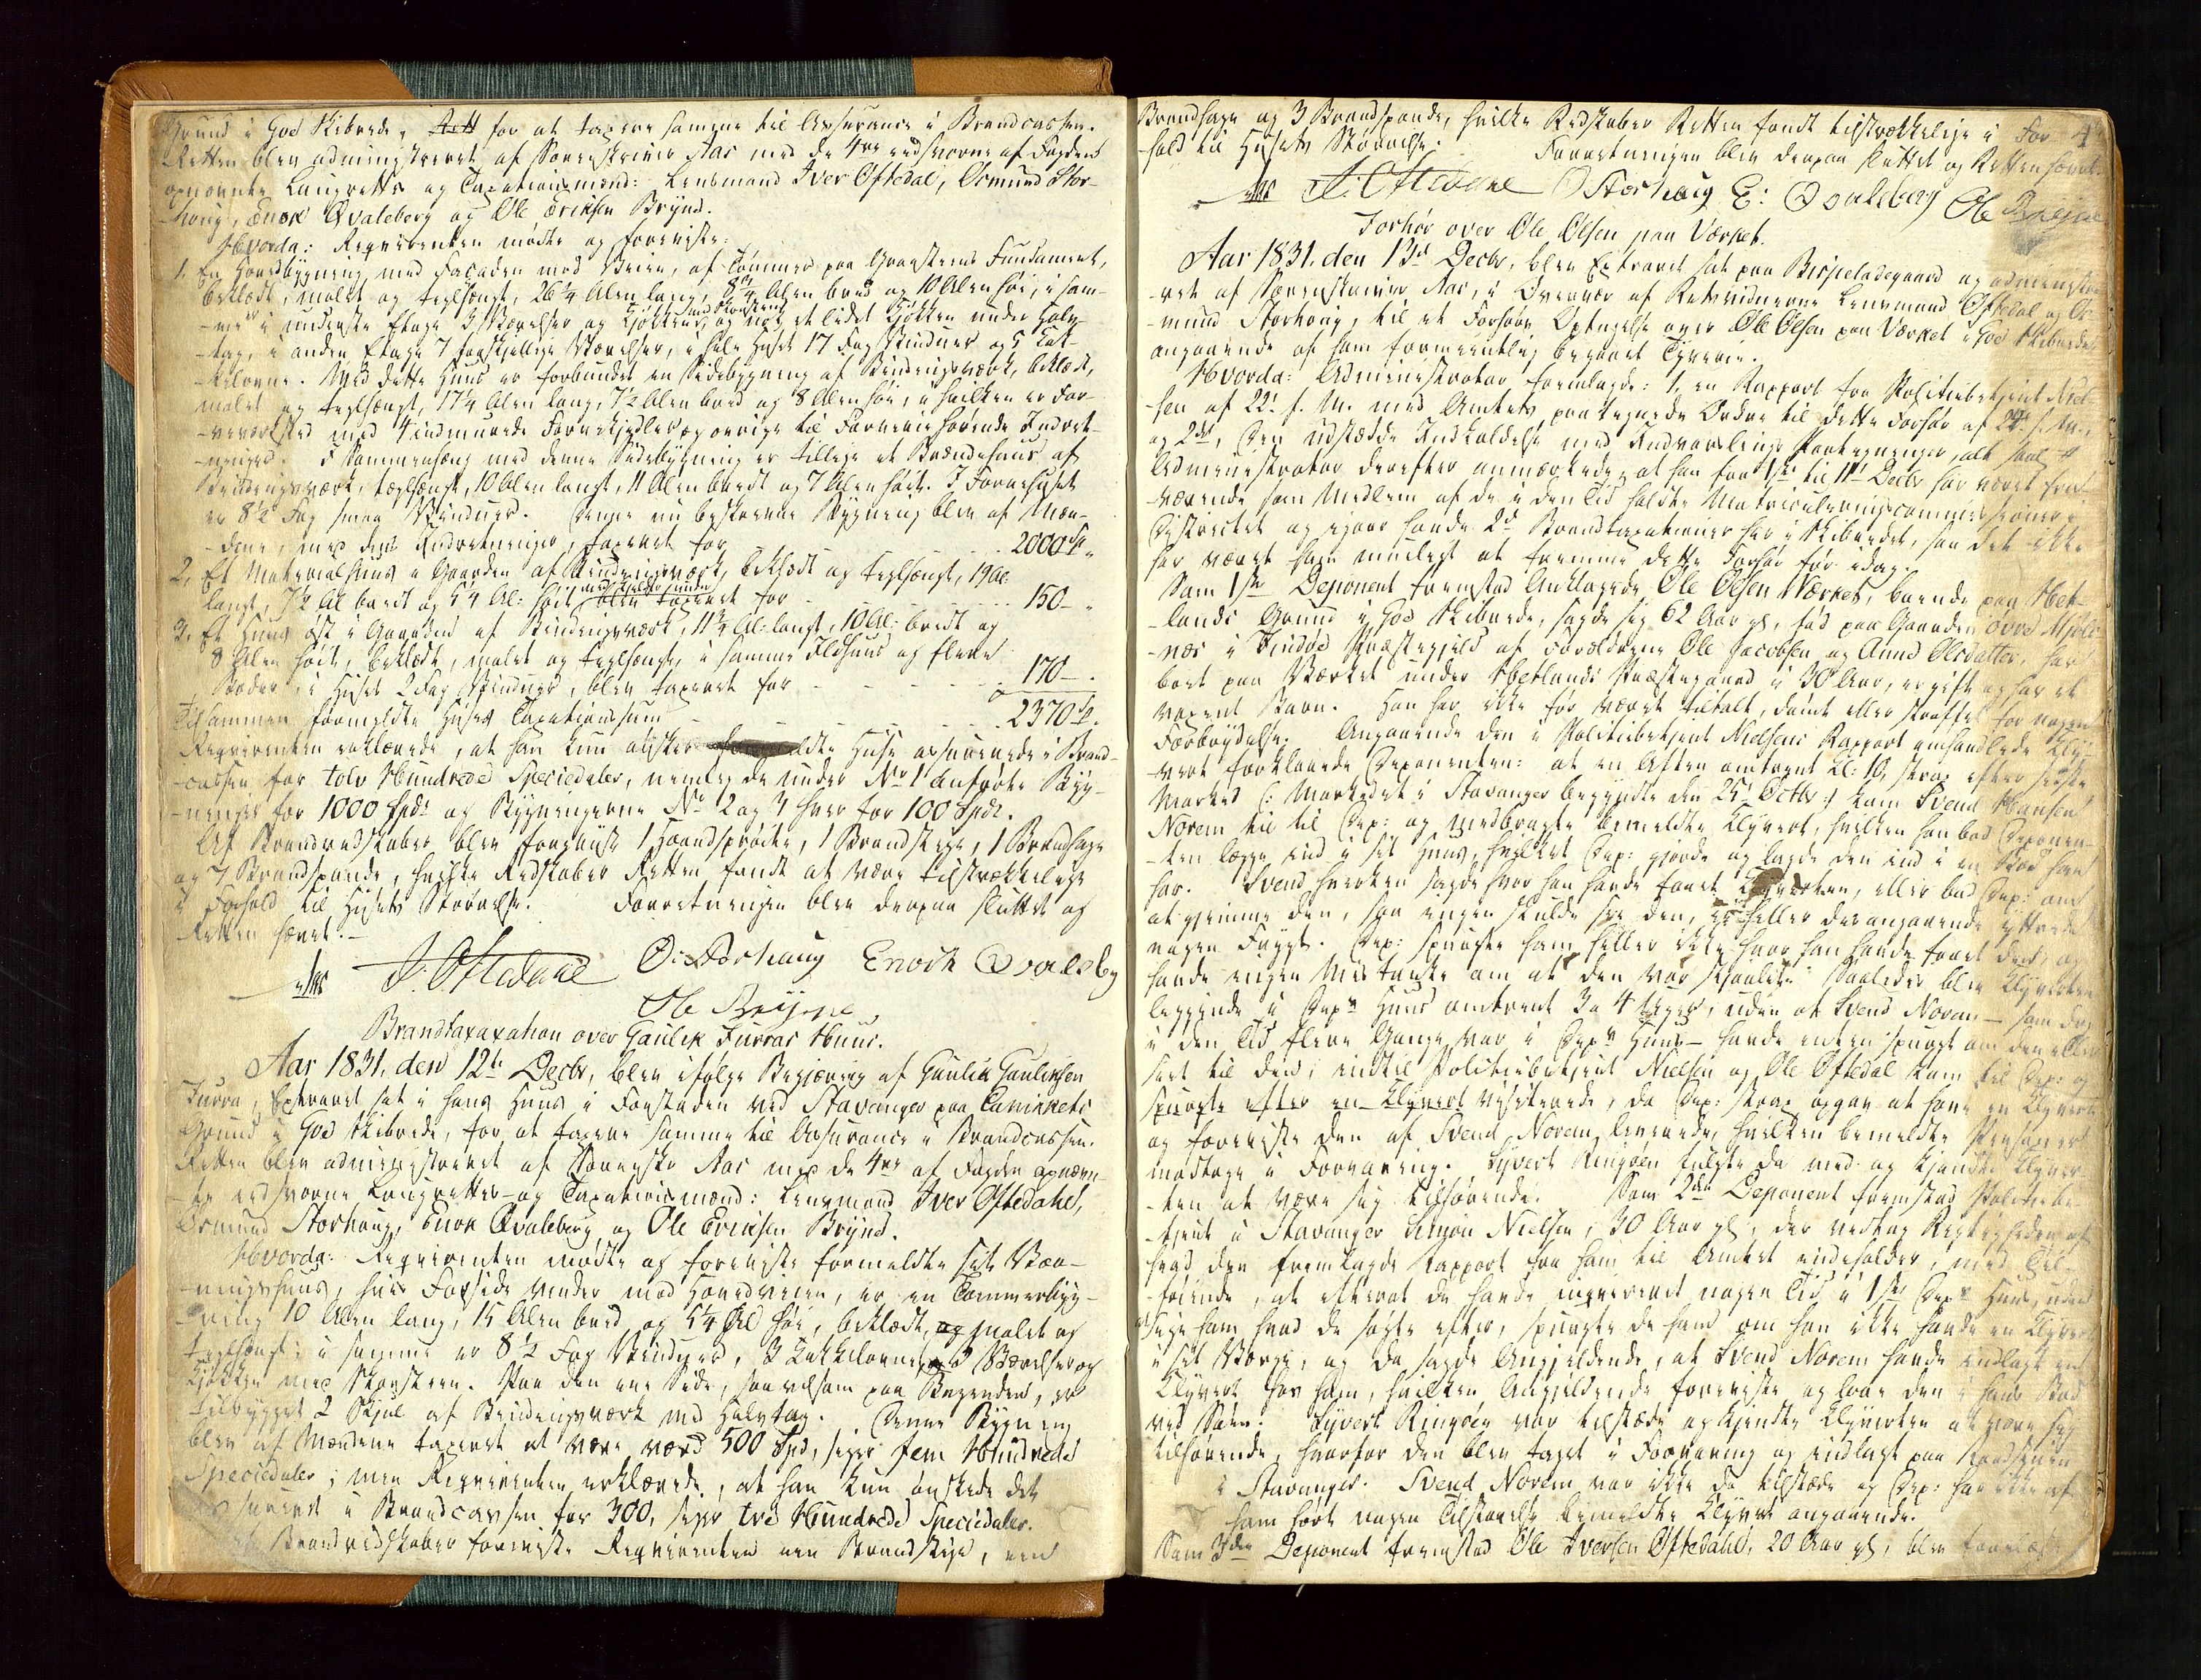 Grund i God Skibrede, for at taxere samme til Assurance i Brandcassen.
Retten blev administreret af Sorenskriver Aas med de 4re edsvorne af Fogden
opnævnte Laugretts og Taxationsmænd: Lensmand Iver Oftedal, Ormund Stor-
houg, Enok Qvaleberg og Ole Eriksen Brynd.
Hvorda: Reqvirenten mødte og foreviste:
1. En Hovedbygning med Facaden mod Veien, af Tømmer paa Graasteens Fundament,
beklædt, malet og teglhængt, 26¼ Alen lang, 8¾ Alen bred og 10 Alen høi, i sam-
me er i underste Etage 3 Værelser og Kjøkken med Skorsteen, og nok et lidet Kjøkken under Halv-
tag, i anden Etage 7 forskjellige Værelser, i hele Huset 17 Fag Vinduer og 5 Kak-
kelovne. Med dette Huus er forbundet en Sidebygning af Bindingsværk, beklædt,
malet og teglhængt, 17¼ Alen lang, 7½ Alen bred og 8 Alen høi, i hvilken er Far-
veværksted med 4 indmurede Farvekjedler og øvrige til Farverie hørende Indret-
ninger. I Sammenhæng med denne Sidebygning er tillige et Brændehuus af
Bindingsværk, teglhængt, 10 Alen langt, 11 Alen bredt og 7 Alen høit. I Farvehuset
er 8½ Fag smaa Vinduer. Denne nu beskrevne Bygning blev af Mæn-
dene, med dens Indretninger, taxeret for . . . 2000 Sp.
2, Et Materialhuus i Gaarden af Bindingsværk, beklædt og teglhængt, 19 Al:
langt, 7½ Al bredt og 5¼ Al: høit med Kjelder under blev taxeret for . . . 150 –
3. Et Huus øst i Gaarden af Bindingsværk, 11¾ Al: langt, 10 Al: bredt og
8 Alen høit, beklædt, malet og teglhængt, i samme Ildhuus og flere
Boder, i Huset 2 Fag Vinduer, blev taxeret for . . . 170 –
Tilsammen formeldte Huses Taxationssum . . . 2370 Sp.
Reqvirenten erklærede, at han kun ønsker formeldte Huse assurerede i Brand-
cassen for tolv Hundrede Speciedaler, nemlig de under No 1 anførte Byg-
ninger for 1000 Spdr og Bygningerne No 2 og 3 hver for 100 Spdr.
Af Brandredskaber blev foreviist 1 Haandsprøite, 1 Brandstige, 1 Brandhage
og 7 Brandspande, hvilke Redskaber Retten fandt at være tilstrækkelige
i Forhold til Husets Størrelse. Forretningen blev derpaa sluttet og
Retten hævet. –
Aas I. Oftedahl O: Storhaug Enock Qvaleberg
Ole Bryne
Brandtaxation over Gaulik Furras Huus.
Aar 1831, den 12te Decbr, blev ifølge Begjæring af Gaulik Gauliksen
Furra, Extraret sat i hans Huus i Forstaden ved Stavanger paa
Grund i God Skibrede, for at taxere samme til Assurance i Brandcassen.
Retten blev administreret af Sorenskr. Aas med de 4re af Fogden opnævn-
te edsvorne Laugrettes- og Taxationsmænd: Lensmand Iver Oftedahl,
Ormund Storhoug, Enok Qvaleberg og Ole Eriksen Brynd.
Hvorda: Reqvirenten mødte og foreviste formeldte sit Vaa-
ningshuus, hvis Forside vender mod Hovedveien, er en Tømmerbyg-
ning 10 Alen lang, 15 Alen bred og 5¼ Al høi, beklædt, malet og
teglhængt; i samme er 8½ Fag Vinduer, 3 Kakkelovne, 3 Værelser og
Kjøkken med Skorsteen. Paa den ene Side, saavelsom paa Bagenden, er
tilbygget 2 Skjul af Bindingsværk med Halvtag. Denne Bygning
blev af Mændene taxeret at være værd 500 Spd, siger fem Hundrede
Speciedaler; men Reqvirenten erklærede, at han kun ønskede det
assureret i Brandcassen for 300, siger tre Hundrede Speciedaler.
Brandredskaber foreviste Reqvirenten een Brandstige, een
Brandhage og 3 Brandspande, hvilke Redskaber Retten fandt tilstrækkelige i For- 4
hold til Husets Størrelse. Forretningen blev derpaa sluttet og Retten hævet.
Aas I. Oftedahl O Storhaug E: Qvaleberg Ole Bryne
Forhør over Ole Olsen paa Værket.
Aar 1831, den 13de Decbr, blev Extraret sat paa Bispeladegaard og administre-
ret af Sorenskriver Aas, i Overvær af Retsvidnerne Lensmand Oftedal og Or-
mund Storhoug, til et Forhørs Optagelse over Ole Olsen paa Værket i God Skibrede
angaaende af ham formeentlig begaaet Tyverie.
Hvorda: Administrator fremlagde: 1, en Rapport fra Politiebetjent Niel-
sen af 22de f. M. med Amtets paategnede Ordre til dette Forhør af 24de f. M.,
og 2de, den udstædte Indkaldelse med Forkyndelses Paategninger, alt saal #
Administrator derefter anmærkede, at han fra 1ste til 11te Decbr har været fra-
værende som Medlem af de i den Tid holdte Matriculeringscommissioner i
Districtet og igaar havde 2de Brandtaxationer her i Skibredet, saa det ikke
har været ham mueligt at fremme dette Forhør før idag.
Som 1ste Deponent fremstod Anklagede Ole Olsen Værket, boende paa Het-
lands Grund i God Skibrede, sagde sig 62 Aar gl, fød paa Gaarden øvre
næs i Findøe Præstegjeld af Forældrene Ole Jacobsen og Anne Olsdatter, har
boet paa Værket under Hetlands Præstegaard i 30 Aar, er gift og har et
voxent Barn. Han har ikke før været tiltalt, dømt eller straffet for nogen
Forbrydelse. Angaaende den i Politiebetjent Nielsens Rapport omhandlede Kly-
vert forklarede Deponenten: at en Aften omtrent Kl: 10, strax efter sidste
Marked (: Markedet i Stavanger begyndte den 25de Octbr :) kom Svend Hansen
Norem til Dep: og medbragte bemeldte Klyvert, hvilken han bad Deponen-
ten lægge ind i sit Huus, hvilket Dep: gjorde og lagde den ind i en Bod han
har. Svend hverken sagde hvor han havde faaet Klyverten, eller bad Dep: om
at gjemme den, saa ingen skulde see den, ei heller desangaaende yttrede
nogen Frygt. Dep: spurgte ham heller ikke hvor han havde faaet den, og
havde ingen Mistanke om at den var stjaalen. Saaledes blev Klyverten
liggende i Deps Huus omtrent 3 a 4 Uger, uden at Svend Norem – som dog
i den Tid flere Gange var i Deps Huus – havde enten spurgt om den eller
seet til den, indtil Politiebetjent Nielsen og Ole Oftedal kom til Dep: og
spurgte efter en Klyvert visiterede, da Dep: strax opgav at have en Klyvert
og foreviste den af Svend Norem leverede, hvilken bemeldte Personer
modtoge i Forvaring. Syvert Ringøen fulgte da med og kjendte Klyver-
ten at være sig tilhørende. Som 2den Deponent fremstod Politiebe-
tjent i Stavanger Simon Nielsen, 30 Aar gl, der vedtog Rigtigheden af
hvad den fremlagde Rapport fra ham til Amtet indeholder, med Til-
føiende, at efterat de havde inqvireret nogen Tid i 1ste Deps Huus, uden
at sige ham hvad de søgte efter, spurgte de ham om han ikke havde en Klyvert
i sit Værge, og da sagde Angjeldende, at Svend Norem havde indlagt en
Klyvert hos ham, hvilken Angjeldende foreviste og laae den i hans Bod
ved Søen. Syvert Ringøen var tilstæde og kjendte Klyverten at være sig
tilhørende, hvorfor den blev taget i Forvaring og indlagt paa Raadstuen
i Stavanger. Svend Norem var ikke da tilstæde og Dep: har ikke af
ham hørt nogen Tilstaaelse bemeldte Klyvert angaaende.
Som 3die Deponent fremstod Ole Iversen Oftedahl, 20 Aar gl, blev forelæst